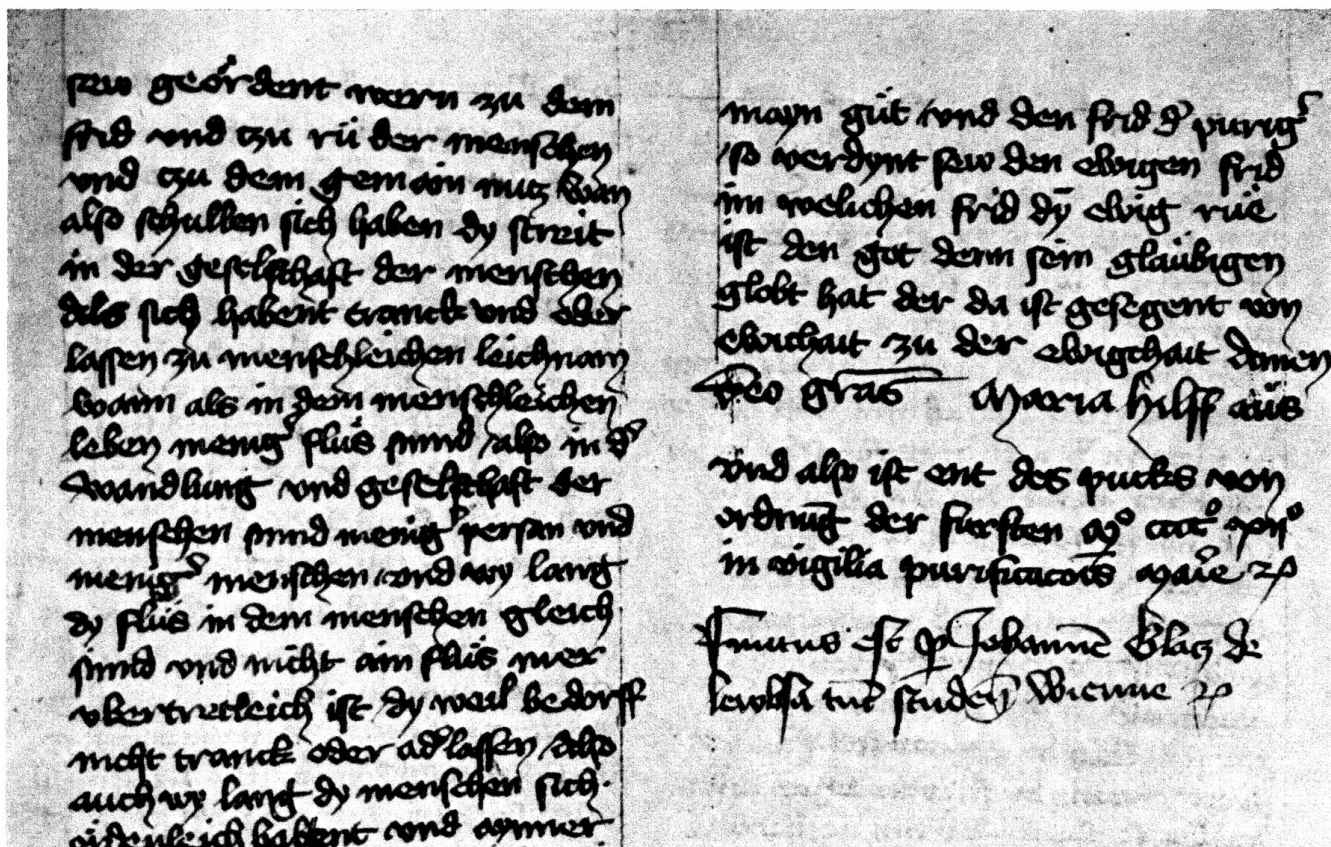 sew geördent wern zu dem
frid vnd czu rü der menschen
vnd czu dem gemain nutz wan
also schullen sich haben dy streit
in der geselschaft der menschen
als sich habent tranck vnd oder
lassen zu menschleichen leichnam
wann als in dem menschleichen
leben menig' flüs sunnd also in d'
wandlung vnd geselschaft der
menschen sunnd menig' persan vnd
menig' menschen vnd wy lang
dy flüs in dem menschen gleich
sunnd vnd nicht ain flüs mer
vbertretleich ist dy weil bedorff
nicht tranck oder ad'lassen also
auch wy lang dy menschen sich
ördenleich habent vnd aynner
mayn güt vnd den frid d' purig'
so verdynt sew den ewigen frid
im welichen frid dȳ ewig rüe
ist den got denn sein glaübigen
globt hat der da ist gesegent von
ewichait zu der ewigchait Amen
Deo gras Maria hilff aüs
vnd also ist ent des puches von
ordnūg der fursten mº
in vigilia purificacōis Maīe
Finitus est p Johannē Blacz de
tūc studēs Wienne